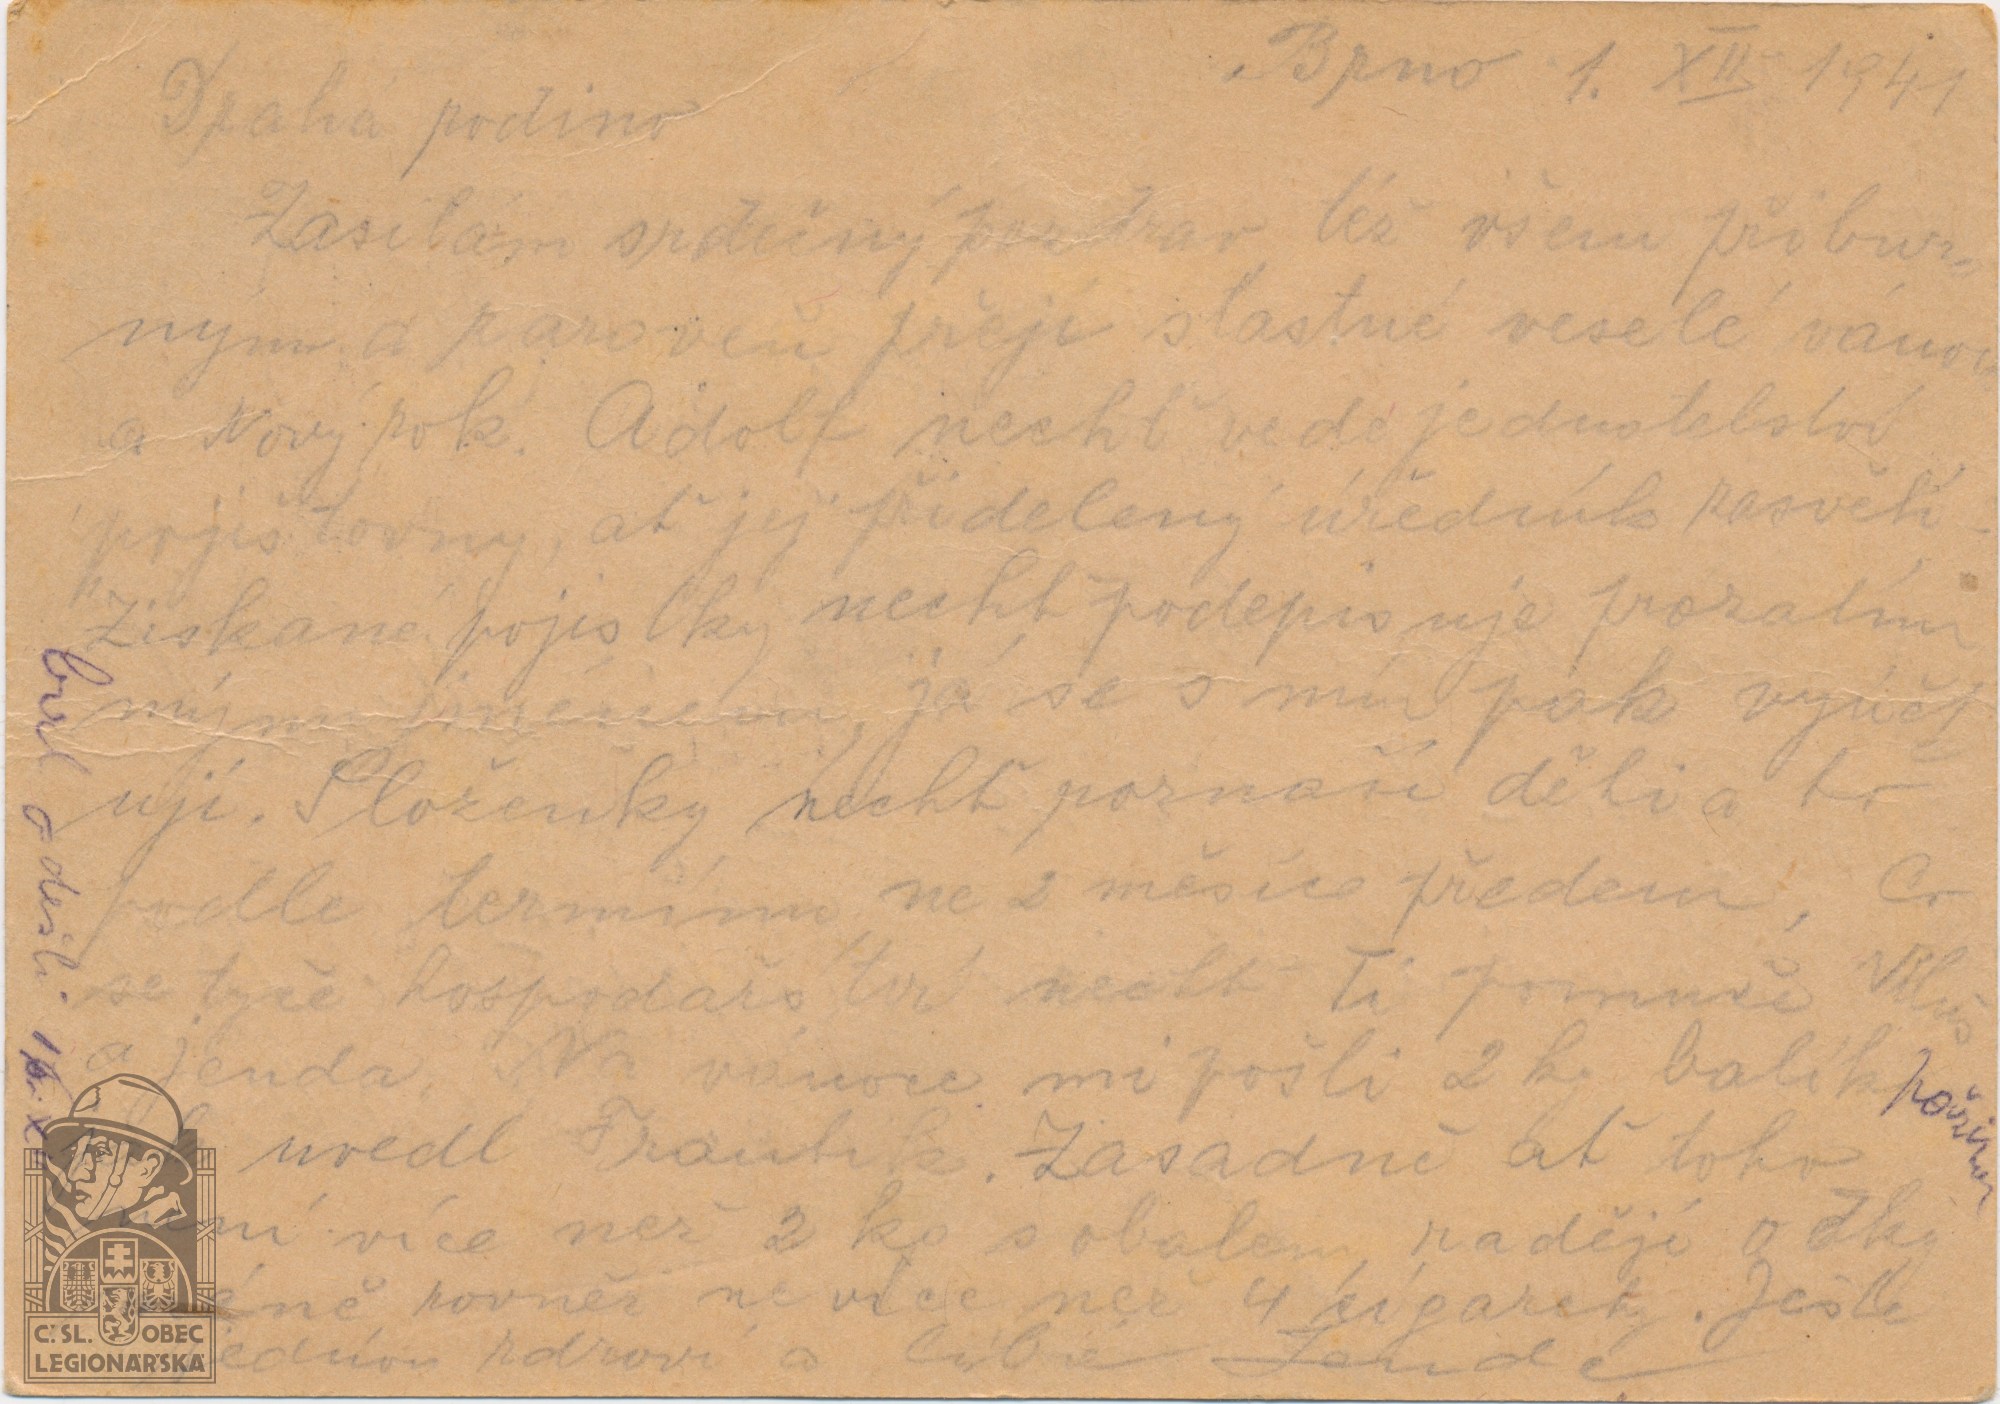 Brno 1. XII 1941
Drahá rodino
Zasílám srdečný pozdrav též všem příbuz-
ným a zároveň přeji šťastné veselé vánoce
a Nový rok. Adolf nechť vede jednatelství
pojišťovny, ať jej přidělený úředník zasvětí.
Získané pojistky nechť podepisuje prozatím
mým jménem, já se s ním pak vyúčt
uji. Složenky nechť poznaší děti a to
podle termínu ne 2 měsíce předem, Co
se týče hospodářství nechť Ti pomuže
a Jenda. Na vánoce mi pošli 2 kg balík
uvedl Frantík. Zasadně ať toho
není více než 2 kg s obalem, raději o dkg
méně rovněž ne více než 4 cigarety. Ještě
jednou zdraví a líbá Jenda
byl odeslán
C.SL. OBEC
LEGIONÁŘSKÁ